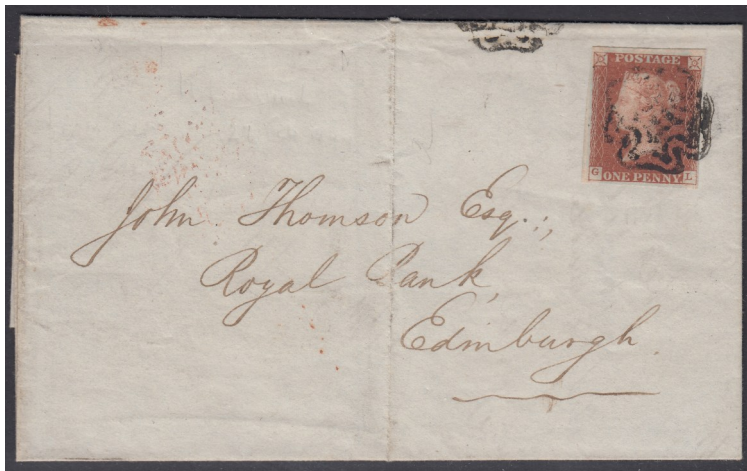 POSTAGE
G ONE PENNY L
John Thomson Esq.;,
Royal Bank,
Edinburgh.